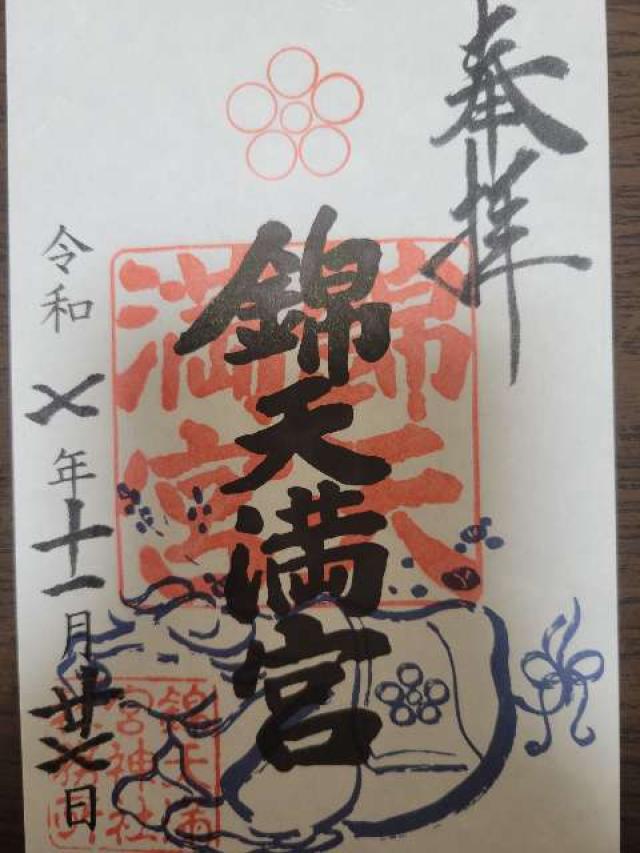 奉拝
錦天
満宮
錦天満宮
令和七年十一月廿七日
錦天満
宮神社
務所